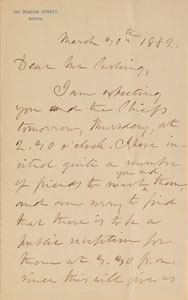 241 BEACON STREET,
BOSTON.
March 30th 1882.
Dear Mr Cushing,
I am expecting
you and the Chiefs
tomorrow, Thursday, at
2.30 o'clock. I have in-
vited quite a number
of friends to meet you and them,
and am sorry to find
that there is to be a
public reception for
them at 3.30 p.m.
since this will give us